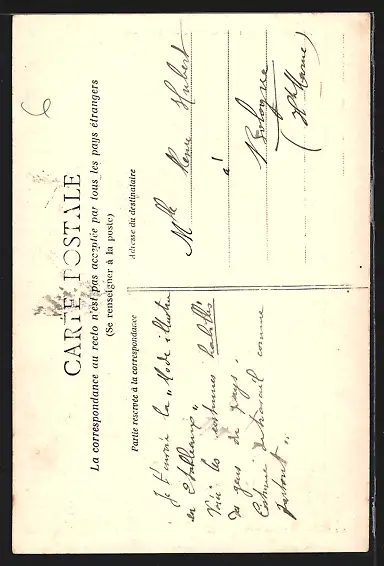 6
CARTE POSTALE
La correspondance au recto n'est pas acceptée par tous les pays étrangers
(Se renseigner à la poste)
Partie réservée à la correspondance
Je t'envoie la "Mode illustrée
en
Voici les costumes habillés
des gens du pays.
Costume de travail comme
partout".
Adresse du destinataire
Mlle Hubert
à
Bologne
(Hte Marne)